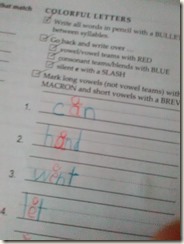 that match
COLORFUL LETTERS
Write all words in pencil with a BULLE
between syllables
Go back and write over ...
vowel/vowel teams with RED
consonant teams/blends with BLUE
silent e with a SLASH
Mark long vowels (not vowel teams) with
MACRON and short vowels with a BREV
1. can
2. hand
3. went
4. let